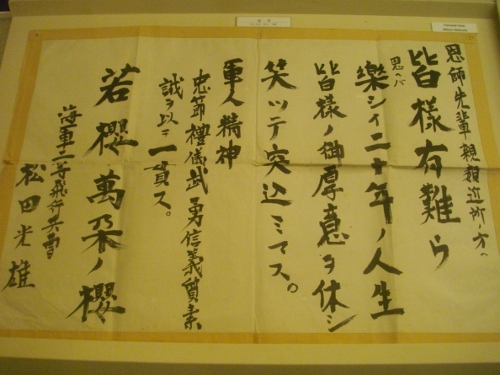 恩師先輩親類近所ノ方々
皆様有難ウ
思ヘバ
樂シイ二十年ノ人生
皆様ノ御厚意ヲ体シ
笑ッテ突込ミマス。
軍人精神
忠節禮儀武勇信義質素
誠ヲ以テ一貫ス。
若櫻萬朶ノ櫻
海軍二等飛行兵曹
松田光雄